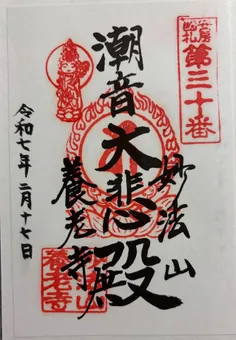 安房
第三十番
妙法山
潮音大悲殿
養老寺
令和七年二月十七日
養老寺